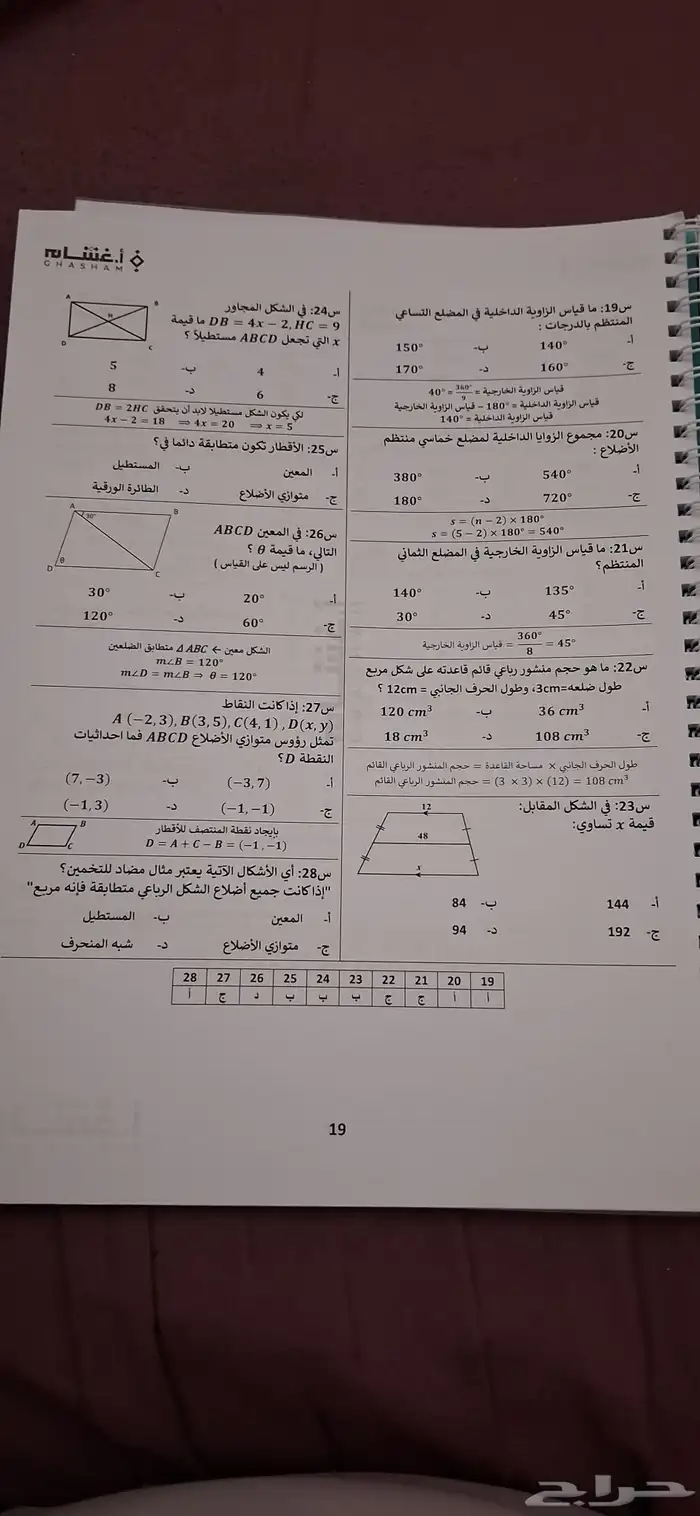 أ.غشام
GHASHAM
س19: ما قياس الزاوية الداخلية في المضلع التساعي
المنتظم بالدرجات :
أ- 140° ب- 150°
ج- 160° د- 170°
قياس الزاوية الخارجية = 360°/9 = 40°
قياس الزاوية الداخلية = 180° − قياس الزاوية الخارجية
قياس الزاوية الداخلية = 140°
س20: مجموع الزوايا الداخلية لمضلع خماسي منتظم
الأضلاع :
أ- 540° ب- 380°
ج- 720° د- 180°
s = (n − 2) × 180°
s = (5 − 2) × 180° = 540°
س21: ما قياس الزاوية الخارجية في المضلع الثماني
المنتظم؟
أ- 135° ب- 140°
ج- 45° د- 30°
قياس الزاوية الخارجية = 360°/8 = 45°
س22: ما هو حجم منشور رباعي قائم قاعدته على شكل مربع
طول ضلعه=3cm، وطول الحرف الجانبي = 12cm ؟
أ- 36 cm³ ب- 120 cm³
ج- 108 cm³ د- 18 cm³
طول الحرف الجانبي × مساحة القاعدة = حجم المنشور الرباعي القائم
حجم المنشور الرباعي القائم = (3 × 3) × (12) = 108 cm³
س23: في الشكل المقابل:
قيمة x تساوي:
12
48
x
أ- 144 ب- 84
ج- 192 د- 94
س24: في الشكل المجاور
DB = 4x − 2, HC = 9 ما قيمة
x التي تجعل ABCD مستطيلاً ؟
A B
H
D C
أ- 4 ب- 5
ج- 6 د- 8
لكي يكون الشكل مستطيلا لابد أن يتحقق DB = 2HC
4x − 2 = 18 ⟹ 4x = 20 ⟹ x = 5
س25: الأقطار تكون متطابقة دائما في؟
أ- المعين ب- المستطيل
ج- متوازي الأضلاع د- الطائرة الورقية
س26: في المعين ABCD
التالي، ما قيمة θ ؟
(الرسم ليس على القياس)
A B
30°
θ
D C
أ- 20° ب- 30°
ج- 60° د- 120°
الشكل معين ← Δ ABC متطابق الضلعين
m∠B = 120°
m∠D = m∠B ⇒ θ = 120°
س27: إذا كانت النقاط
A (−2, 3), B(3, 5), C(4, 1) , D(x, y)
تمثل رؤوس متوازي الأضلاع ABCD فما احداثيات
النقطة D؟
أ- (−3, 7) ب- (7, −3)
ج- (−1, −1) د- (−1, 3)
بإيجاد نقطة المنتصف للأقطار
D = A + C − B = (−1, −1)
A B
D C
س28: أي الأشكال الآتية يعتبر مثال مضاد للتخمين؟
"إذا كانت جميع أضلاع الشكل الرباعي متطابقة فإنه مربع"
أ- المعين ب- المستطيل
ج- متوازي الأضلاع د- شبه المنحرف
19 20 21 22 23 24 25 26 27 28
أ أ ج ج ب ب ب د ج أ
19
حراج